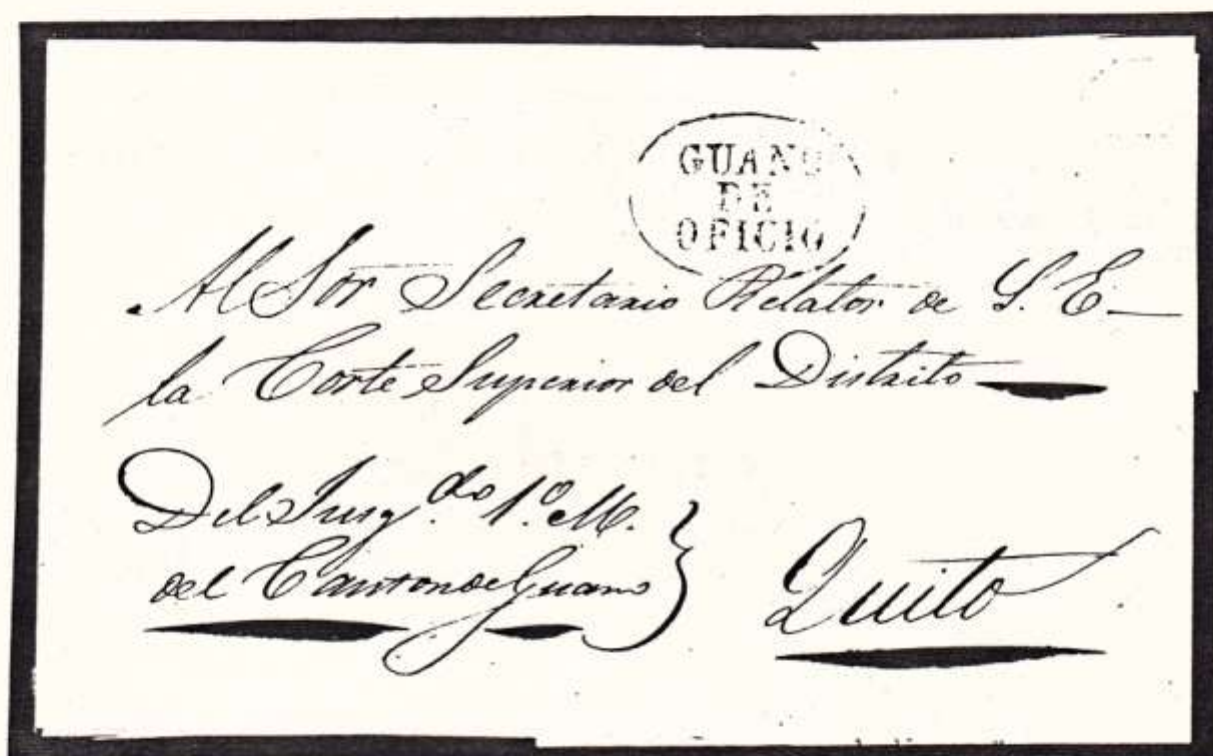 GUANO
DE
OFICIO
Al Sor Secretario Relator de S. E.
la Corte Superior del Distrito
Del Juzg.do 1.o M.
del Canton de Guano
Quito